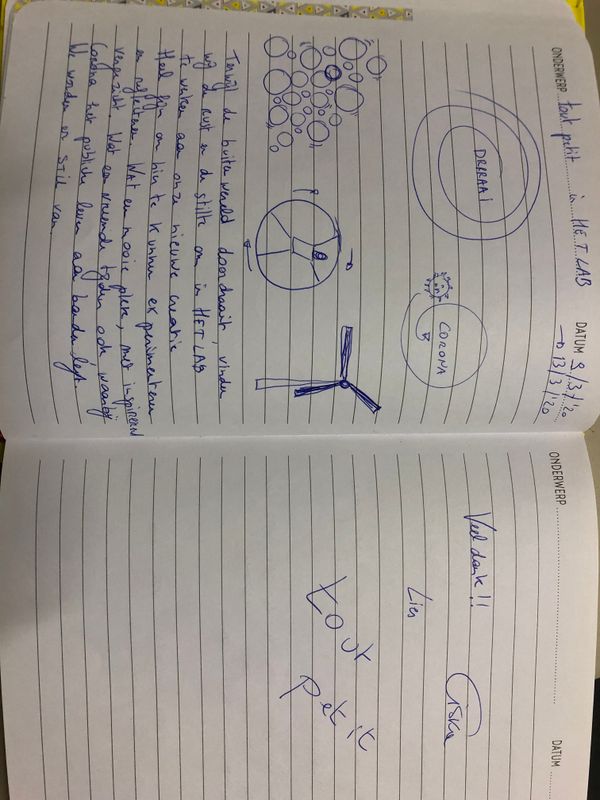 ONDERWERP tout petit in H.E.T. LAB DATUM 9/3/'20
→ 13/3/'20
DRAAAI
CORONA
Terwijl de buitenwereld doordraait, vinden
wij de rust en de stilte om in HET LAB
te werken aan onze nieuwe creatie.
Heel fijn om hier te kunnen experimenteren
en reflecteren. Wat een mooie plek, met inspirerend
vergezicht. Wat een vreemde tijden ook, waarbij
Corona het publieke leven aan banden legt.
We worden er stil van.
ONDERWERP DATUM
Veel dank!!
Ciska
Lies
tout
petit